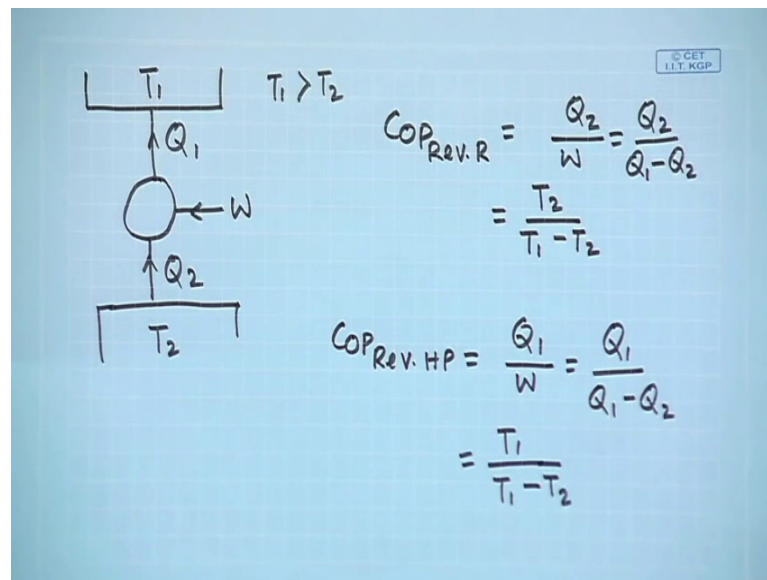 T₁
T₁ > T₂
© CET
I.I.T. KGP
Q₁
W
Q₂
T₂
COP Rev. R = Q₂/W = Q₂/(Q₁-Q₂)
= T₂/(T₁-T₂)
COP Rev. HP = Q₁/W = Q₁/(Q₁-Q₂)
= T₁/(T₁-T₂)